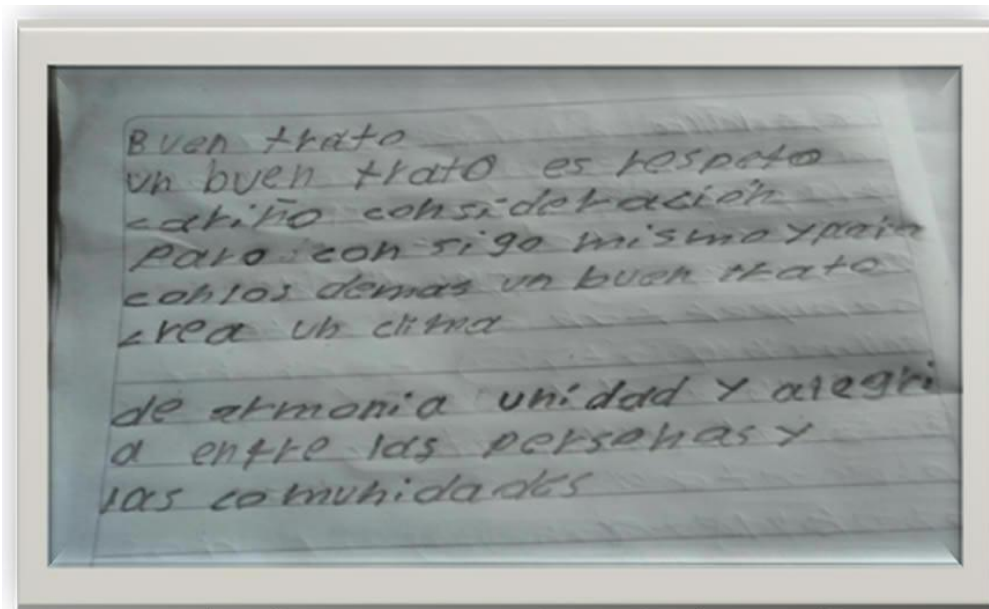 Buen trato
un buen trato es respeto
cariño consideración
para con sigo mismo y para
con los demas un buen trato
crea un clima
de armonia unidad y alegri
a entre las personas y
las comunidades